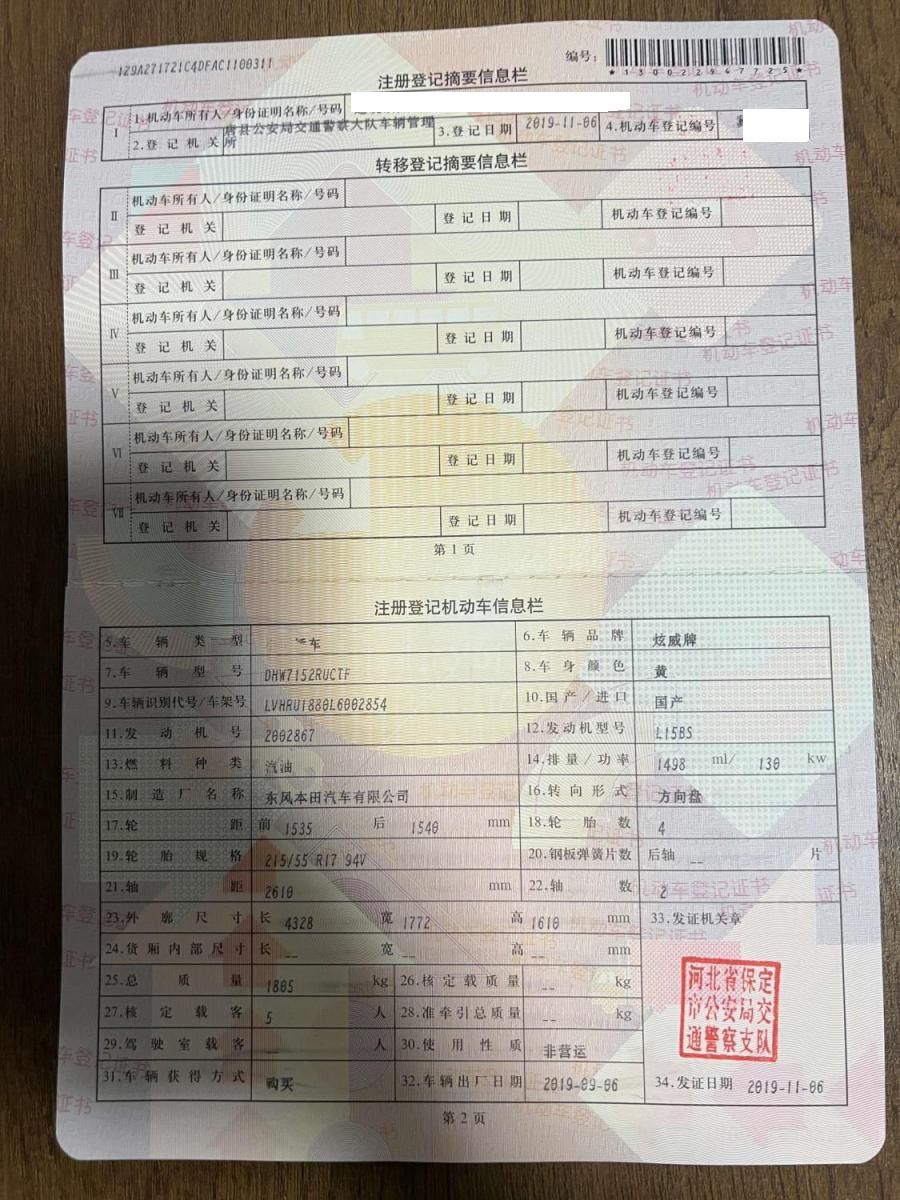 129A271721C4DFAC1100311
编号:
*130022967725*
注册登记摘要信息栏
Ⅰ 1.机动车所有人/身份证明名称/号码
2.登记机关 唐县公安局交通警察大队车辆管理所 3.登记日期 2019-11-06 4.机动车登记编号 冀
转移登记摘要信息栏
Ⅱ 机动车所有人/身份证明名称/号码
登记机关 登记日期 机动车登记编号
Ⅲ 机动车所有人/身份证明名称/号码
登记机关 登记日期 机动车登记编号
Ⅳ 机动车所有人/身份证明名称/号码
登记机关 登记日期 机动车登记编号
Ⅴ 机动车所有人/身份证明名称/号码
登记机关 登记日期 机动车登记编号
Ⅵ 机动车所有人/身份证明名称/号码
登记机关 登记日期 机动车登记编号
Ⅶ 机动车所有人/身份证明名称/号码
登记机关 登记日期 机动车登记编号
第1页
注册登记机动车信息栏
5.车辆类型 车 6.车辆品牌 炫威牌
7.车辆型号 DHW7152RUCTF 8.车身颜色 黄
9.车辆识别代号/车架号 LVHRU1880L6002854 10.国产/进口 国产
11.发动机号 2002867 12.发动机型号 L15BS
13.燃料种类 汽油 14.排量/功率 1498 ml/ 130 kw
15.制造厂名称 东风本田汽车有限公司 16.转向形式 方向盘
17.轮距 前 1535 后 1540 mm 18.轮胎数 4
19.轮胎规格 215/55 R17 94V 20.钢板弹簧片数 后轴 -- 片
21.轴距 2610 mm 22.轴数 2
23.外廓尺寸 长 4328 宽 1772 高 1610 mm 33.发证机关章
24.货厢内部尺寸 长 -- 宽 -- 高 -- mm
25.总质量 1805 kg 26.核定载质量 -- kg
27.核定载客 5 人 28.准牵引总质量 -- kg
29.驾驶室载客 -- 人 30.使用性质 非营运
河北省保定
市公安局交
通警察支队
31.车辆获得方式 购买 32.车辆出厂日期 2019-09-06 34.发证日期 2019-11-06
第2页